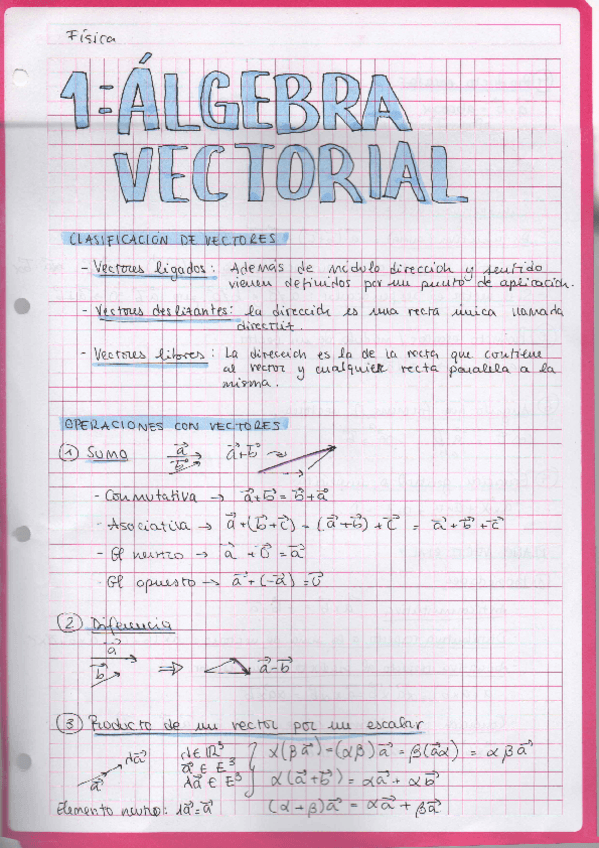 Física
1=ÁLGEBRA
VECTORIAL
CLASIFICACIÓN DE VECTORES
- Vectores ligados: Además de módulo dirección y sentido
vienen definidos por un punto de aplicación.
- Vectores deslizantes: la dirección es una recta única llamada
directriz.
- Vectores libres: La dirección es la de la recta que contiene
al vector y cualquier recta paralela a la
misma.
OPERACIONES CON VECTORES
① Suma a⃗ b⃗ a⃗+b⃗
- Conmutativa → a⃗+b⃗ = b⃗+a⃗
- Asociativa → a⃗+(b⃗+c⃗) = (a⃗+b⃗)+c⃗ = a⃗+b⃗+c⃗
- El neutro → a⃗ + 0⃗ = a⃗
- El opuesto → a⃗+(-a⃗) = 0⃗
② Diferencia
a⃗
b⃗ ⇒ a⃗-b⃗
③ Producto de un vector por un escalar
a⃗ λa⃗
λ∈ℝ³
a⃗ ∈ E³
λa⃗ ∈ E³
α(βa⃗)=(αβ)a⃗ = β(a⃗α) = αβa⃗
α(a⃗+b⃗) = αa⃗+αb⃗
(α+β)a⃗ = αa⃗+βa⃗
Elemento neutro: 1a⃗=a⃗